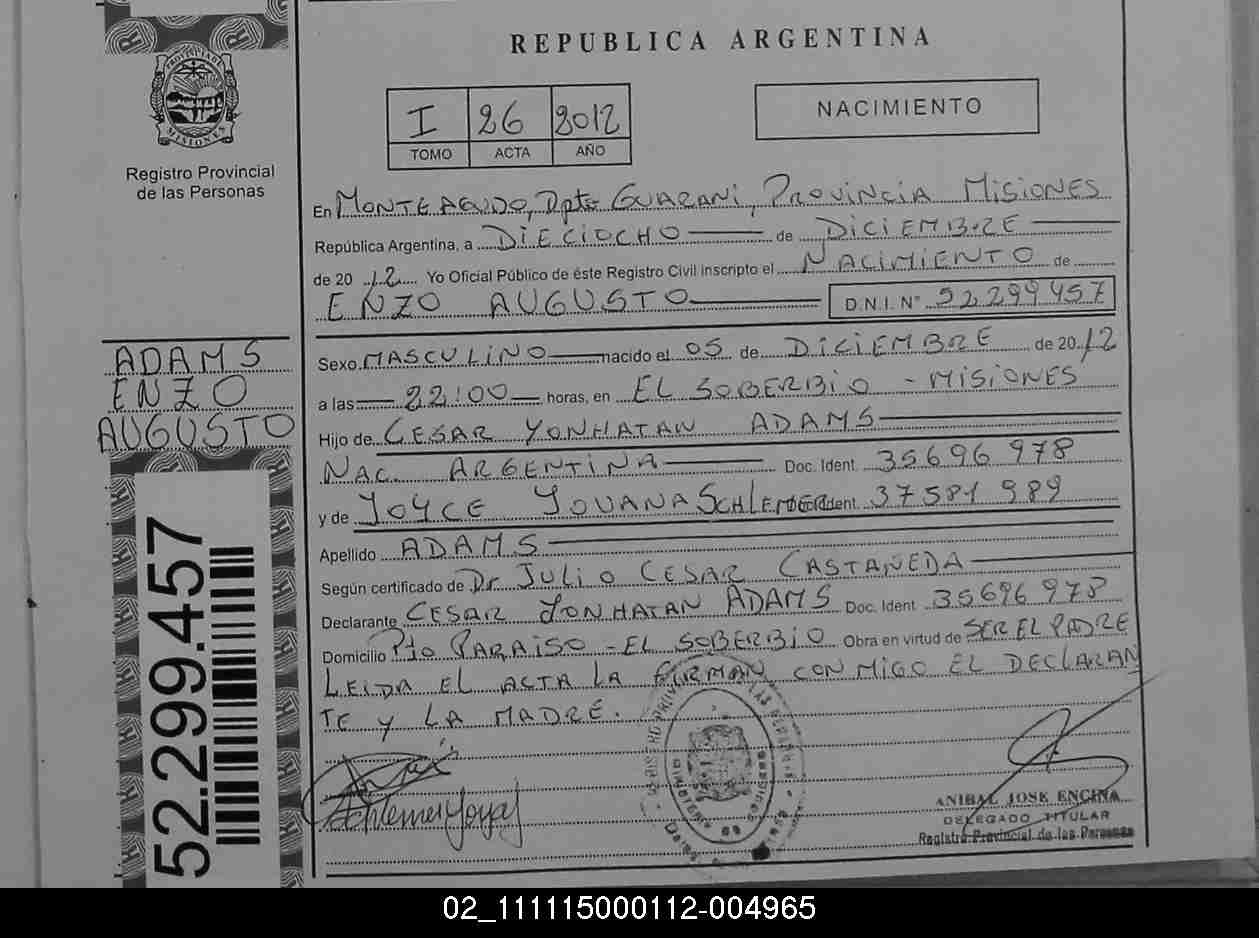 REPUBLICA ARGENTINA
PROVINCIA DE MISIONES
Registro Provincial
de las Personas
I 26 2012
TOMO ACTA AÑO
NACIMIENTO
En MONTEAGUDO, Dpto GUARANI, PROVINCIA MISIONES
República Argentina, a DIECIOCHO de DICIEMBRE
de 20 12 Yo Oficial Público de éste Registro Civil inscripto el NACIMIENTO de
ENZO AUGUSTO D.N.I. N° 52299457
Sexo MASCULINO nacido el 05 de DICIEMBRE de 2012
a las 22:00 horas, en EL SOBERBIO - MISIONES
Hijo de CESAR YONHATAN ADAMS
NAC. ARGENTINA Doc. Ident. 35696978
y de JOYCE YOVANA Ident. 37581989
Apellido ADAMS
Según certificado de Dr. JULIO CESAR CASTAÑEDA
Declarante CESAR YONHATAN ADAMS Doc. Ident 35696978
Domicilio Pto PARAISO - EL SOBERBIO Obra en virtud de SER EL PADRE
LEIDA EL ACTA LA FIRMAN CON MIGO EL DECLARAN
TE Y LA MADRE.
ADAMS
ENZO
AUGUSTO
52.299.457
ANIBAL JOSE ENCINA
DELEGADO TITULAR
Registro Provincial de las Personas
02_111115000112-004965